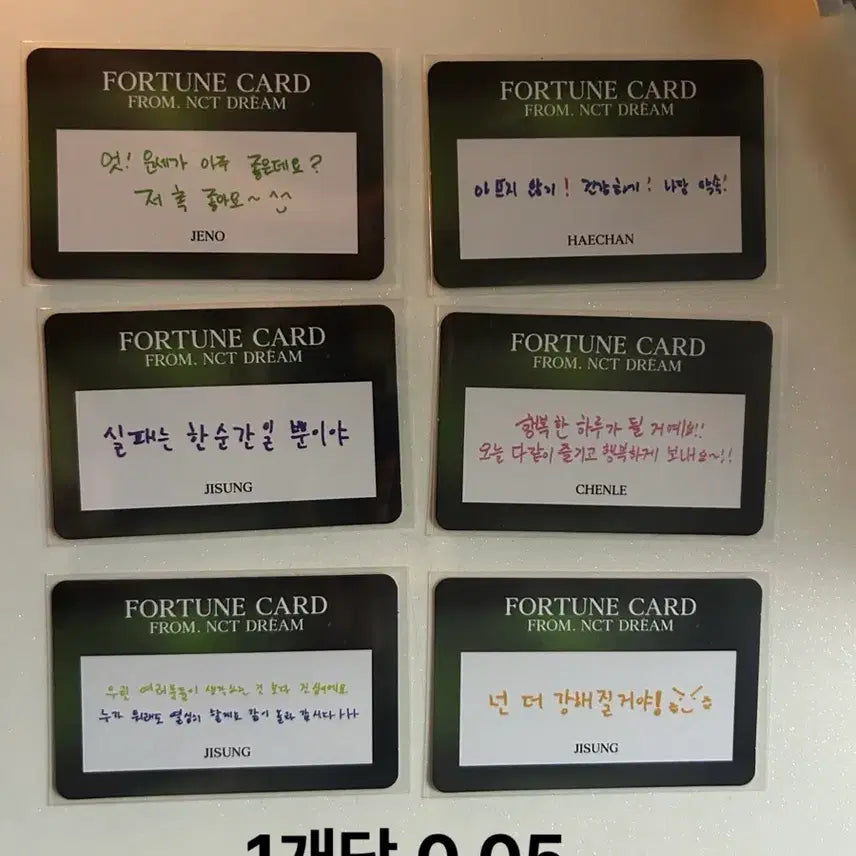 FORTUNE CARD
FROM. NCT DREAM
엇! 운세가 아주 좋은데요?
저 혹 좋아요~ ^^
JENO
FORTUNE CARD
FROM. NCT DREAM
아프지 않기! 건강하기! 나랑 약속!
HAECHAN
FORTUNE CARD
FROM. NCT DREAM
실패는 한순간일 뿐이야
JISUNG
FORTUNE CARD
FROM. NCT DREAM
행복한 하루가 될 거예요!!
오늘 다같이 즐기고 행복하게 보내요~!!
CHENLE
FORTUNE CARD
FROM. NCT DREAM
우린 여러분들이 생각하는 것 보다
누가 뭐래도 열심히 할게요 같이 놀러 갑시다 ㅏㅏㅏ
JISUNG
FORTUNE CARD
FROM. NCT DREAM
넌 더 강해질거야!
JISUNG
1개당 0.05